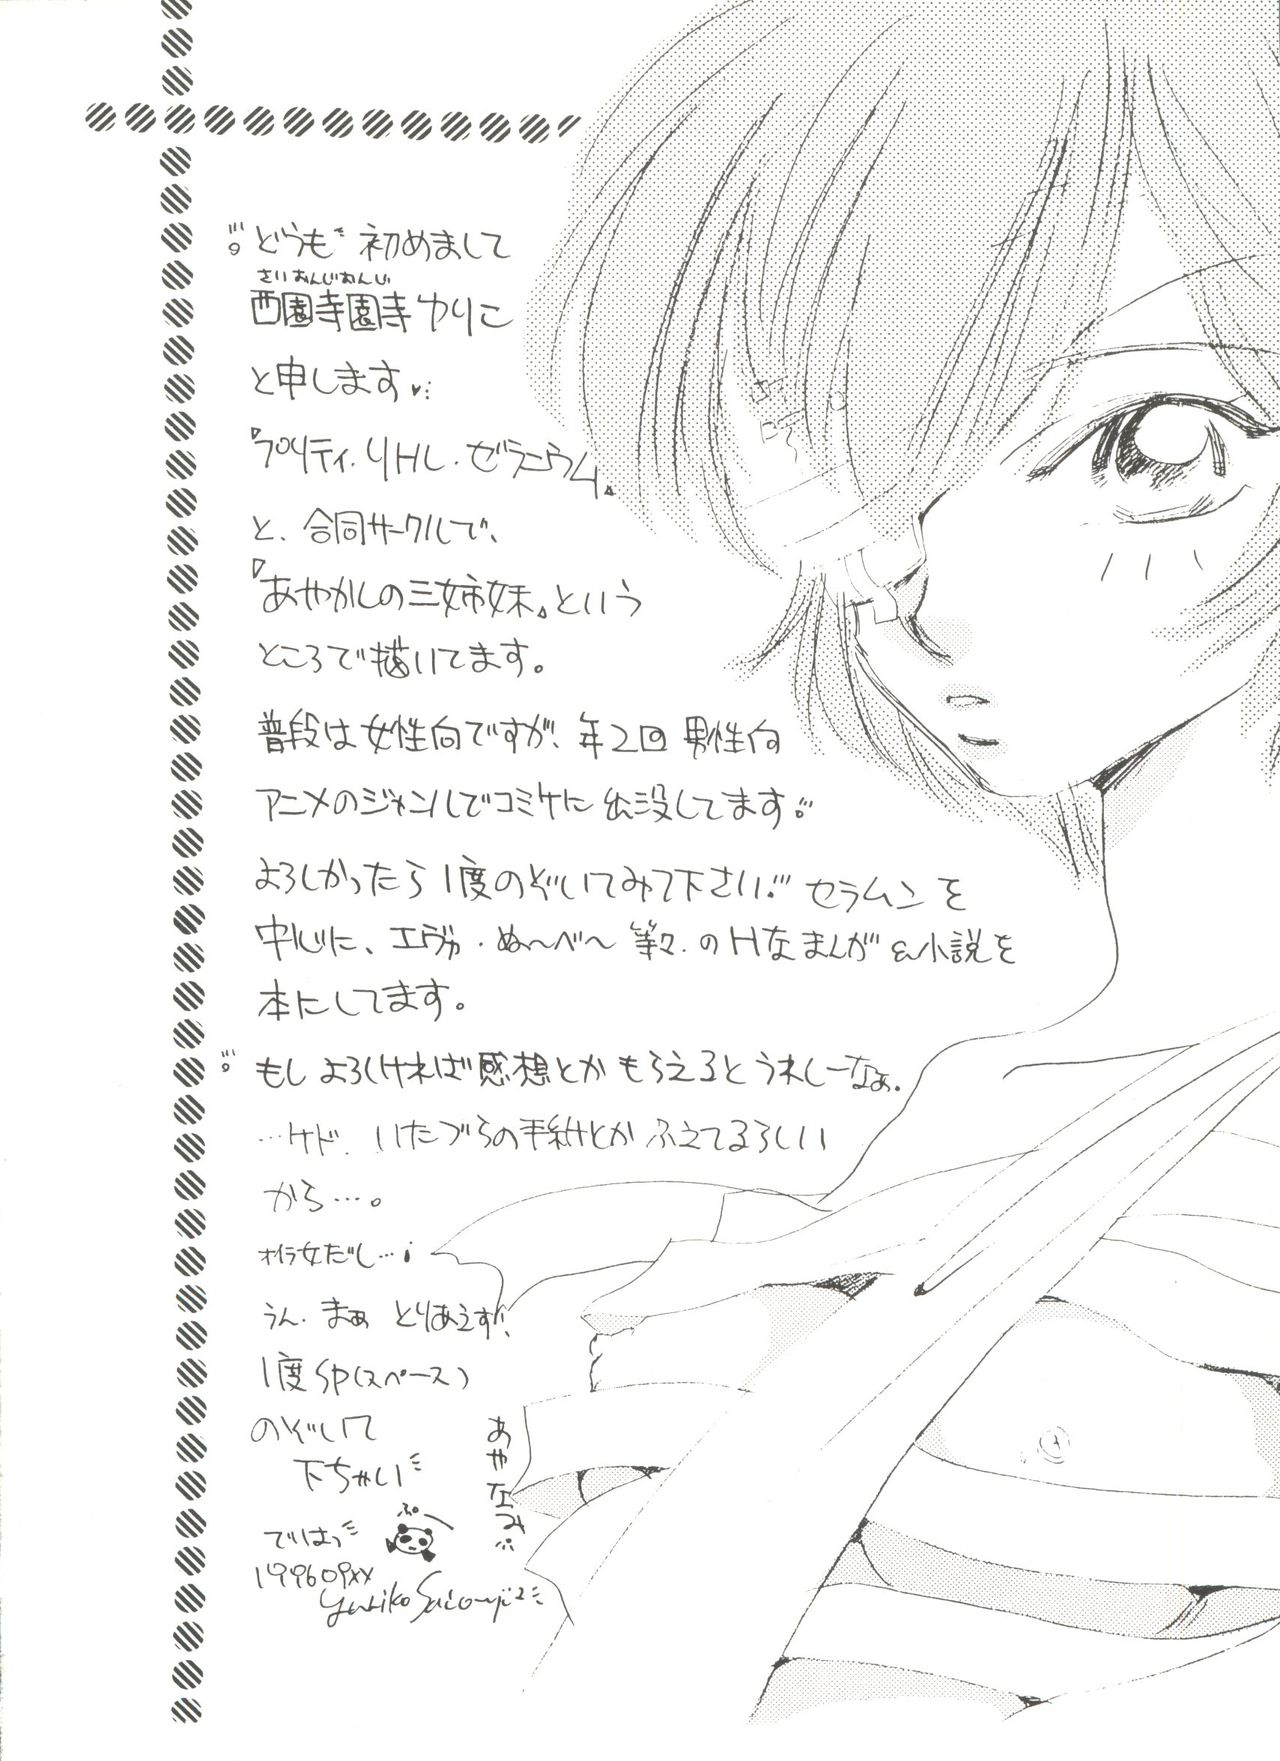 どうも 初めまして
さいおんじおんじ
西園寺園寺ゆりこ
と申します♥
『プリティ・リトル・ゼラニウム』
と、合同サークルで、
『あやかしの三姉妹』という
ところで描いてます。
普段は女性向ですが、年2回 男性向
アニメのジャンルでコミケに出没してます
よろしかったら1度のぞいてみて下さい! セラムンを
中心に、エヴァ・ぬ〜べ〜 等々・のHなまんが&小説を
本にしてます。
もし よろしければ感想とか もらえるとうれしーなぁ。
…ケド、いたづらの手紙とか ふえてるらしい
から…。
オイラ女だし…!
うん、まぁ とりあえず!
1度SP(スペース)
のぞいて
下ちゃい
では
ぷー
199609XX
Yuriko Saionji2
あやなみ